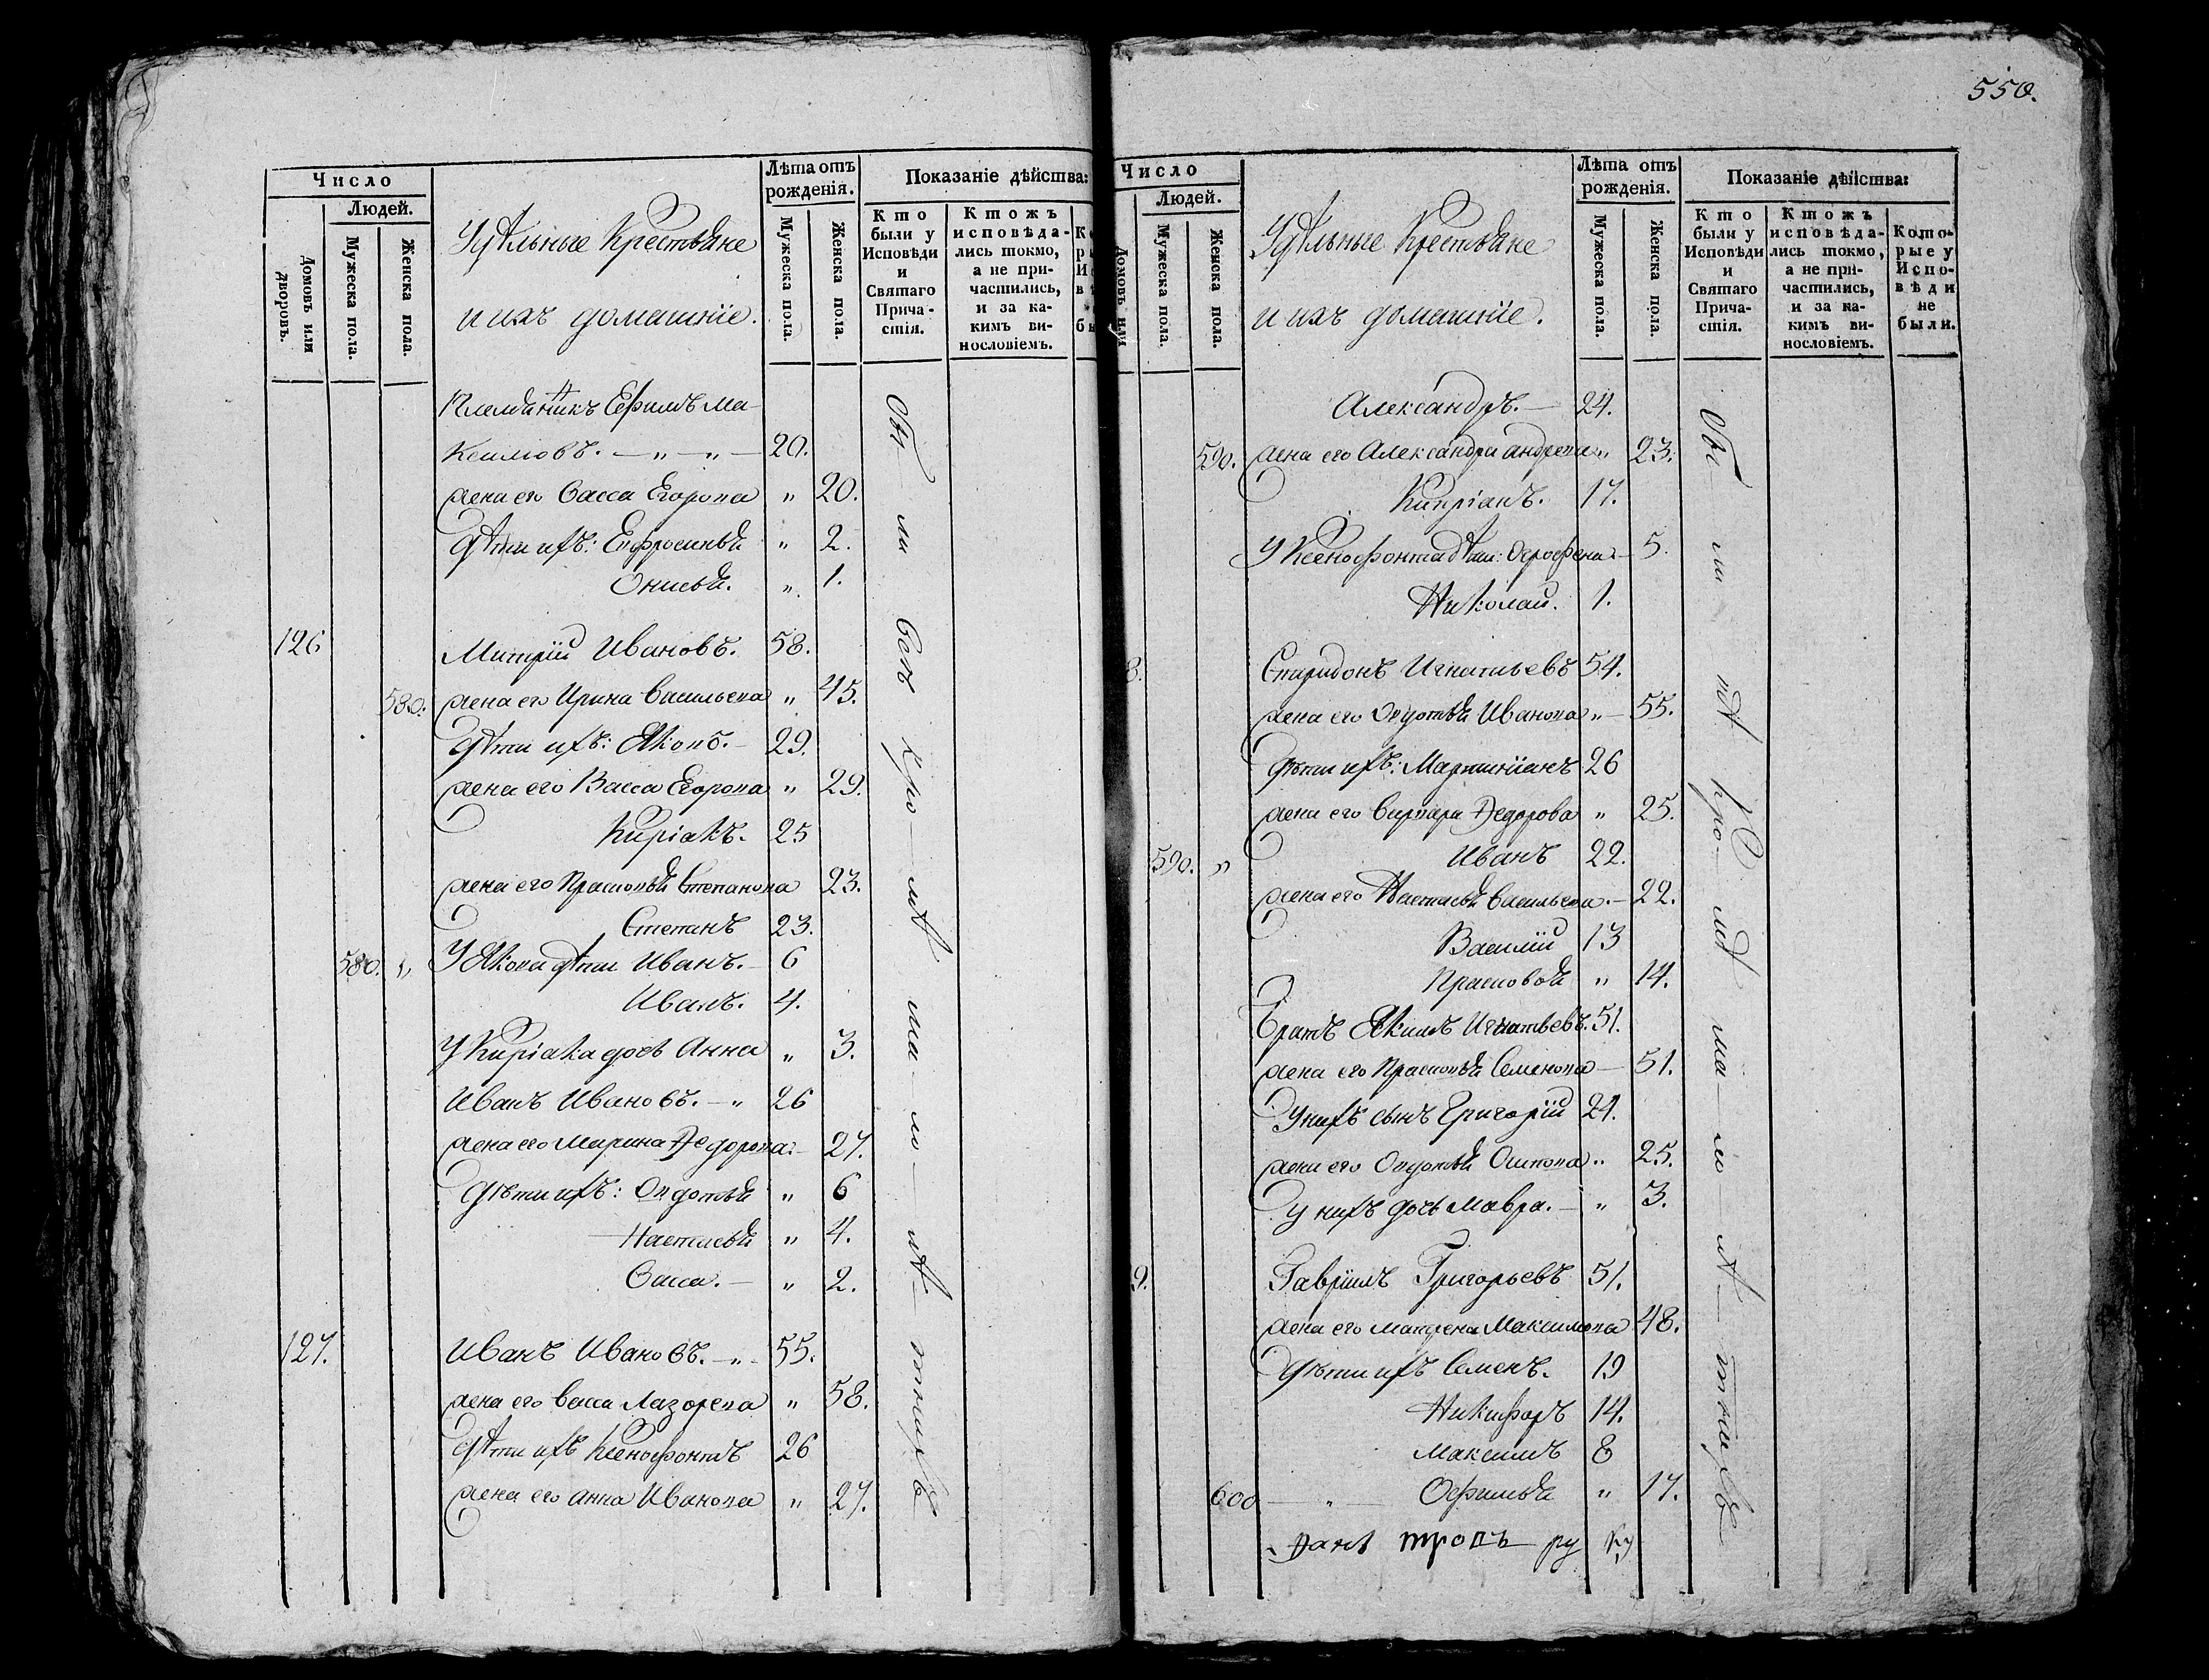 550.
Число
Людей.
Домовъ или дворовъ.
Мужеска пола.
Женска пола.
Удѣльные Крестьяне
и ихъ домашніе.
Лѣта отъ рожденія.
Мужеска пола.
Женска пола.
Показаніе дѣйства:
Кто были у Исповѣди и Святаго Причастія.
Ктожъ исповѣдались токмо, а не причастились, и за какимъ винословіемъ.
Племянникъ Ефимъ Ма-
ксимовъ. — „ — „ — 20.
жена его Васса Егорова „ 20.
дѣти ихъ: Евфросинья „ 2.
Онисья. „ 1.
126 Митрій Ивановъ. 58.
580. жена его Ирина Васильева „ 45.
дѣти ихъ: Яковъ. — 29.
жена его Васса Егорова „ 29.
Киріакъ. 25
жена его Прасковья Степанова 23.
Степанъ 23.
580. „ У Якова дѣти Иванъ. — 6
Иванъ. 4.
У Киріака дочь Анна „ 3.
Иванъ Ивановъ. — „ 26
жена его Марина Ѳедорова. — 27.
дѣти ихъ: Овдотья „ 6
Настасья „ 4.
Васса. — „ 2.
127. Иванъ Ивановъ. — „ — 55.
жена его Васса Лазорева „ 58.
дѣти ихъ Ксенофонтъ 26
жена его Анна Иванова „ 27.
Число
Людей.
Домовъ или
Мужеска пола.
Женска пола.
Удѣльные Крестьяне
и ихъ домашніе.
Лѣта отъ рожденія.
Мужеска пола.
Женска пола.
Показаніе дѣйства:
Кто были у Исповѣди и Святаго Причастія.
Ктожъ исповѣдались токмо, а не причастились, и за какимъ винословіемъ.
Которые у Исповѣди не были.
Александръ. — 24.
590. жена его Александра Андреева „ 23.
Кипріанъ. 17.
У Ксенофонта дѣти: Огрофена — 5.
Николай. 1.
8. Спиридонъ Игнатьевъ 54.
жена его Овдотья Иванова „ — 55.
дѣти ихъ: Мартиніанъ 26
жена его Варвара Ѳедорова „ 25.
590. „ Иванъ 22.
жена его Настасья Васильева. — 22.
Василій 13
Прасковья „ 14.
Братъ Якимъ Игнатьевъ. 51.
жена его Прасковья Семенова — 51.
У нихъ сынъ Григорій 24.
жена его Овдотья Осипова „ 25.
у нихъ дочь Мавра. — „ 3.
9. Гавріилъ Григорьевъ 51.
жена его Матрена Максимова 48.
дѣти ихъ Семенъ. 19
Никифоръ 14.
Максимъ 8
600 — „ — Офимья „ 17.
петровъ ру ку